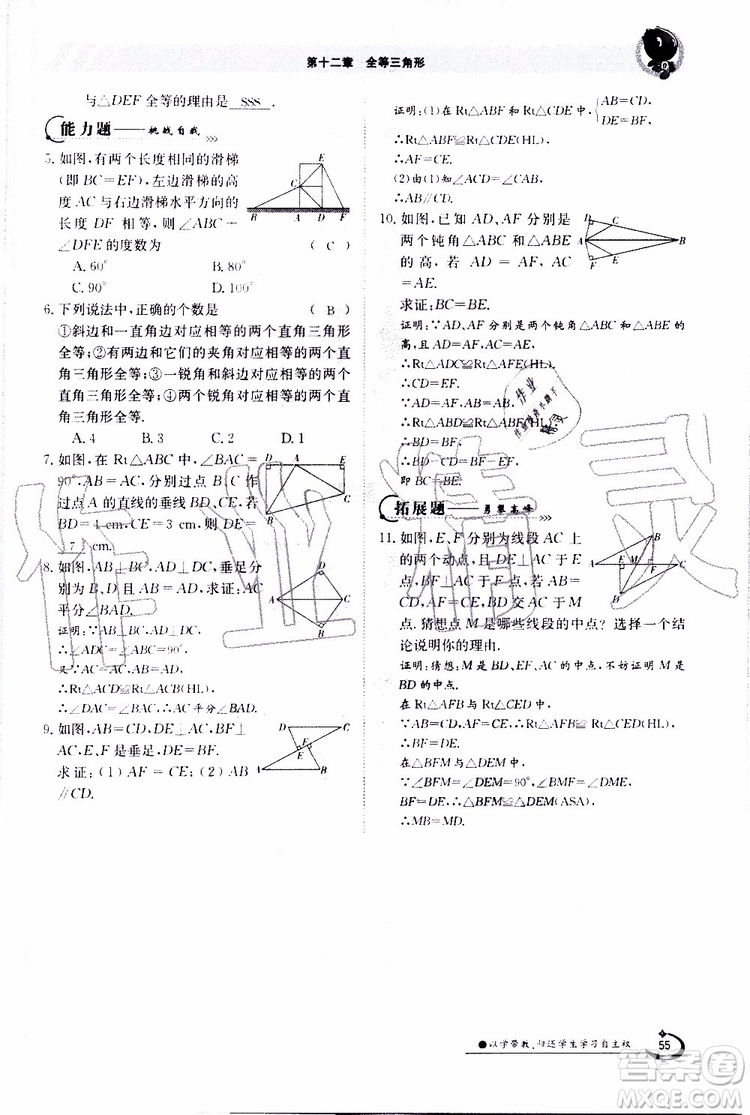 第十二章 全等三角形
与△DEF全等的理由是 SSS .
能力题——挑战自我
5. 如图,有两个长度相同的滑梯
(即BC=EF),左边滑梯的高
度AC与右边滑梯水平方向的
长度DF相等,则∠ABC+
∠DFE的度数为 ( C )
A. 60° B. 80°
C. 90° D. 100°
6. 下列说法中,正确的个数是 ( B )
①斜边和一直角边对应相等的两个直角三角形
全等;②有两边和它们的夹角对应相等的两个直
角三角形全等;③一锐角和斜边对应相等的两个
直角三角形全等;④两个锐角对应相等的两个直
角三角形全等.
A. 4 B. 3 C. 2 D. 1
7. 如图,在Rt△ABC中,∠BAC=
90°,AB=AC,分别过点B,C作
过点A的直线的垂线BD,CE,若
BD=4 cm,CE=3 cm,则DE=
7 cm.
8. 如图,AB⊥BC,AD⊥DC,垂足分
别为B,D,AB=AD.求证:AC
平分∠BAD.
证明:∵AB⊥BC,AD⊥DC,
∴∠ABC=∠ADC=90°.
又∵AC=AC,AB=AD,
∴Rt△ABC≌Rt△ADC(HL).
∴∠DAC=∠BAC,∴AC平分∠BAD.
9. 如图,AB=CD,DE⊥AC,BF⊥
AC,E,F是垂足,DE=BF.
求证:(1)AF=CE;(2)AB
∥CD.
证明:(1)在Rt△ABF和Rt△CDE中,∵{AB=CD,
BF=DE,
∴Rt△ABF≌Rt△CDE(HL).
∴AF=CE.
(2)由(1)知∠ACD=∠CAB,
∴AB∥CD.
10. 如图,已知AD,AF分别是
两个钝角△ABC和△ABE
的高,若AD=AF,AC
=AE.
求证:BC=BE.
证明:∵AD,AF分别是两个钝角△ABC和△ABE的
高,且AD=AF,AC=AE,
∴Rt△ADC≌Rt△AFE(HL).
∴CD=EF.
∵AD=AF,AB=AB,
∴Rt△ABD≌Rt△ABF(HL).
∴BD=BF.
∴BD-CD=BF-EF.
即BC=BE.
拓展题——勇攀高峰
11. 如图,E,F分别为线段AC上
的两个动点,且DE⊥AC于点
E,BF⊥AC于点F,若AB=
CD,AF=CE,BD交AC于点
M.猜想点M是哪些线段的中点?选择一个结
论说明你的理由.
证明:猜想:M是BD、EF、AC的中点,不妨证明M
是BD的中点.
在Rt△AFB与Rt△CED中,
∵AB=CD,AF=CE,
∴Rt△AFB≌Rt△CED(HL).
∴BF=DE.
在△BFM与△DEM中,
∵∠BFM=∠DEM=90°,∠BMF=∠DME,
BF=DE,∴△BFM≌△DEM(ASA).
∴MB=MD.
以学带教,归还学生学习自主权
55
作业精灵
答案圈